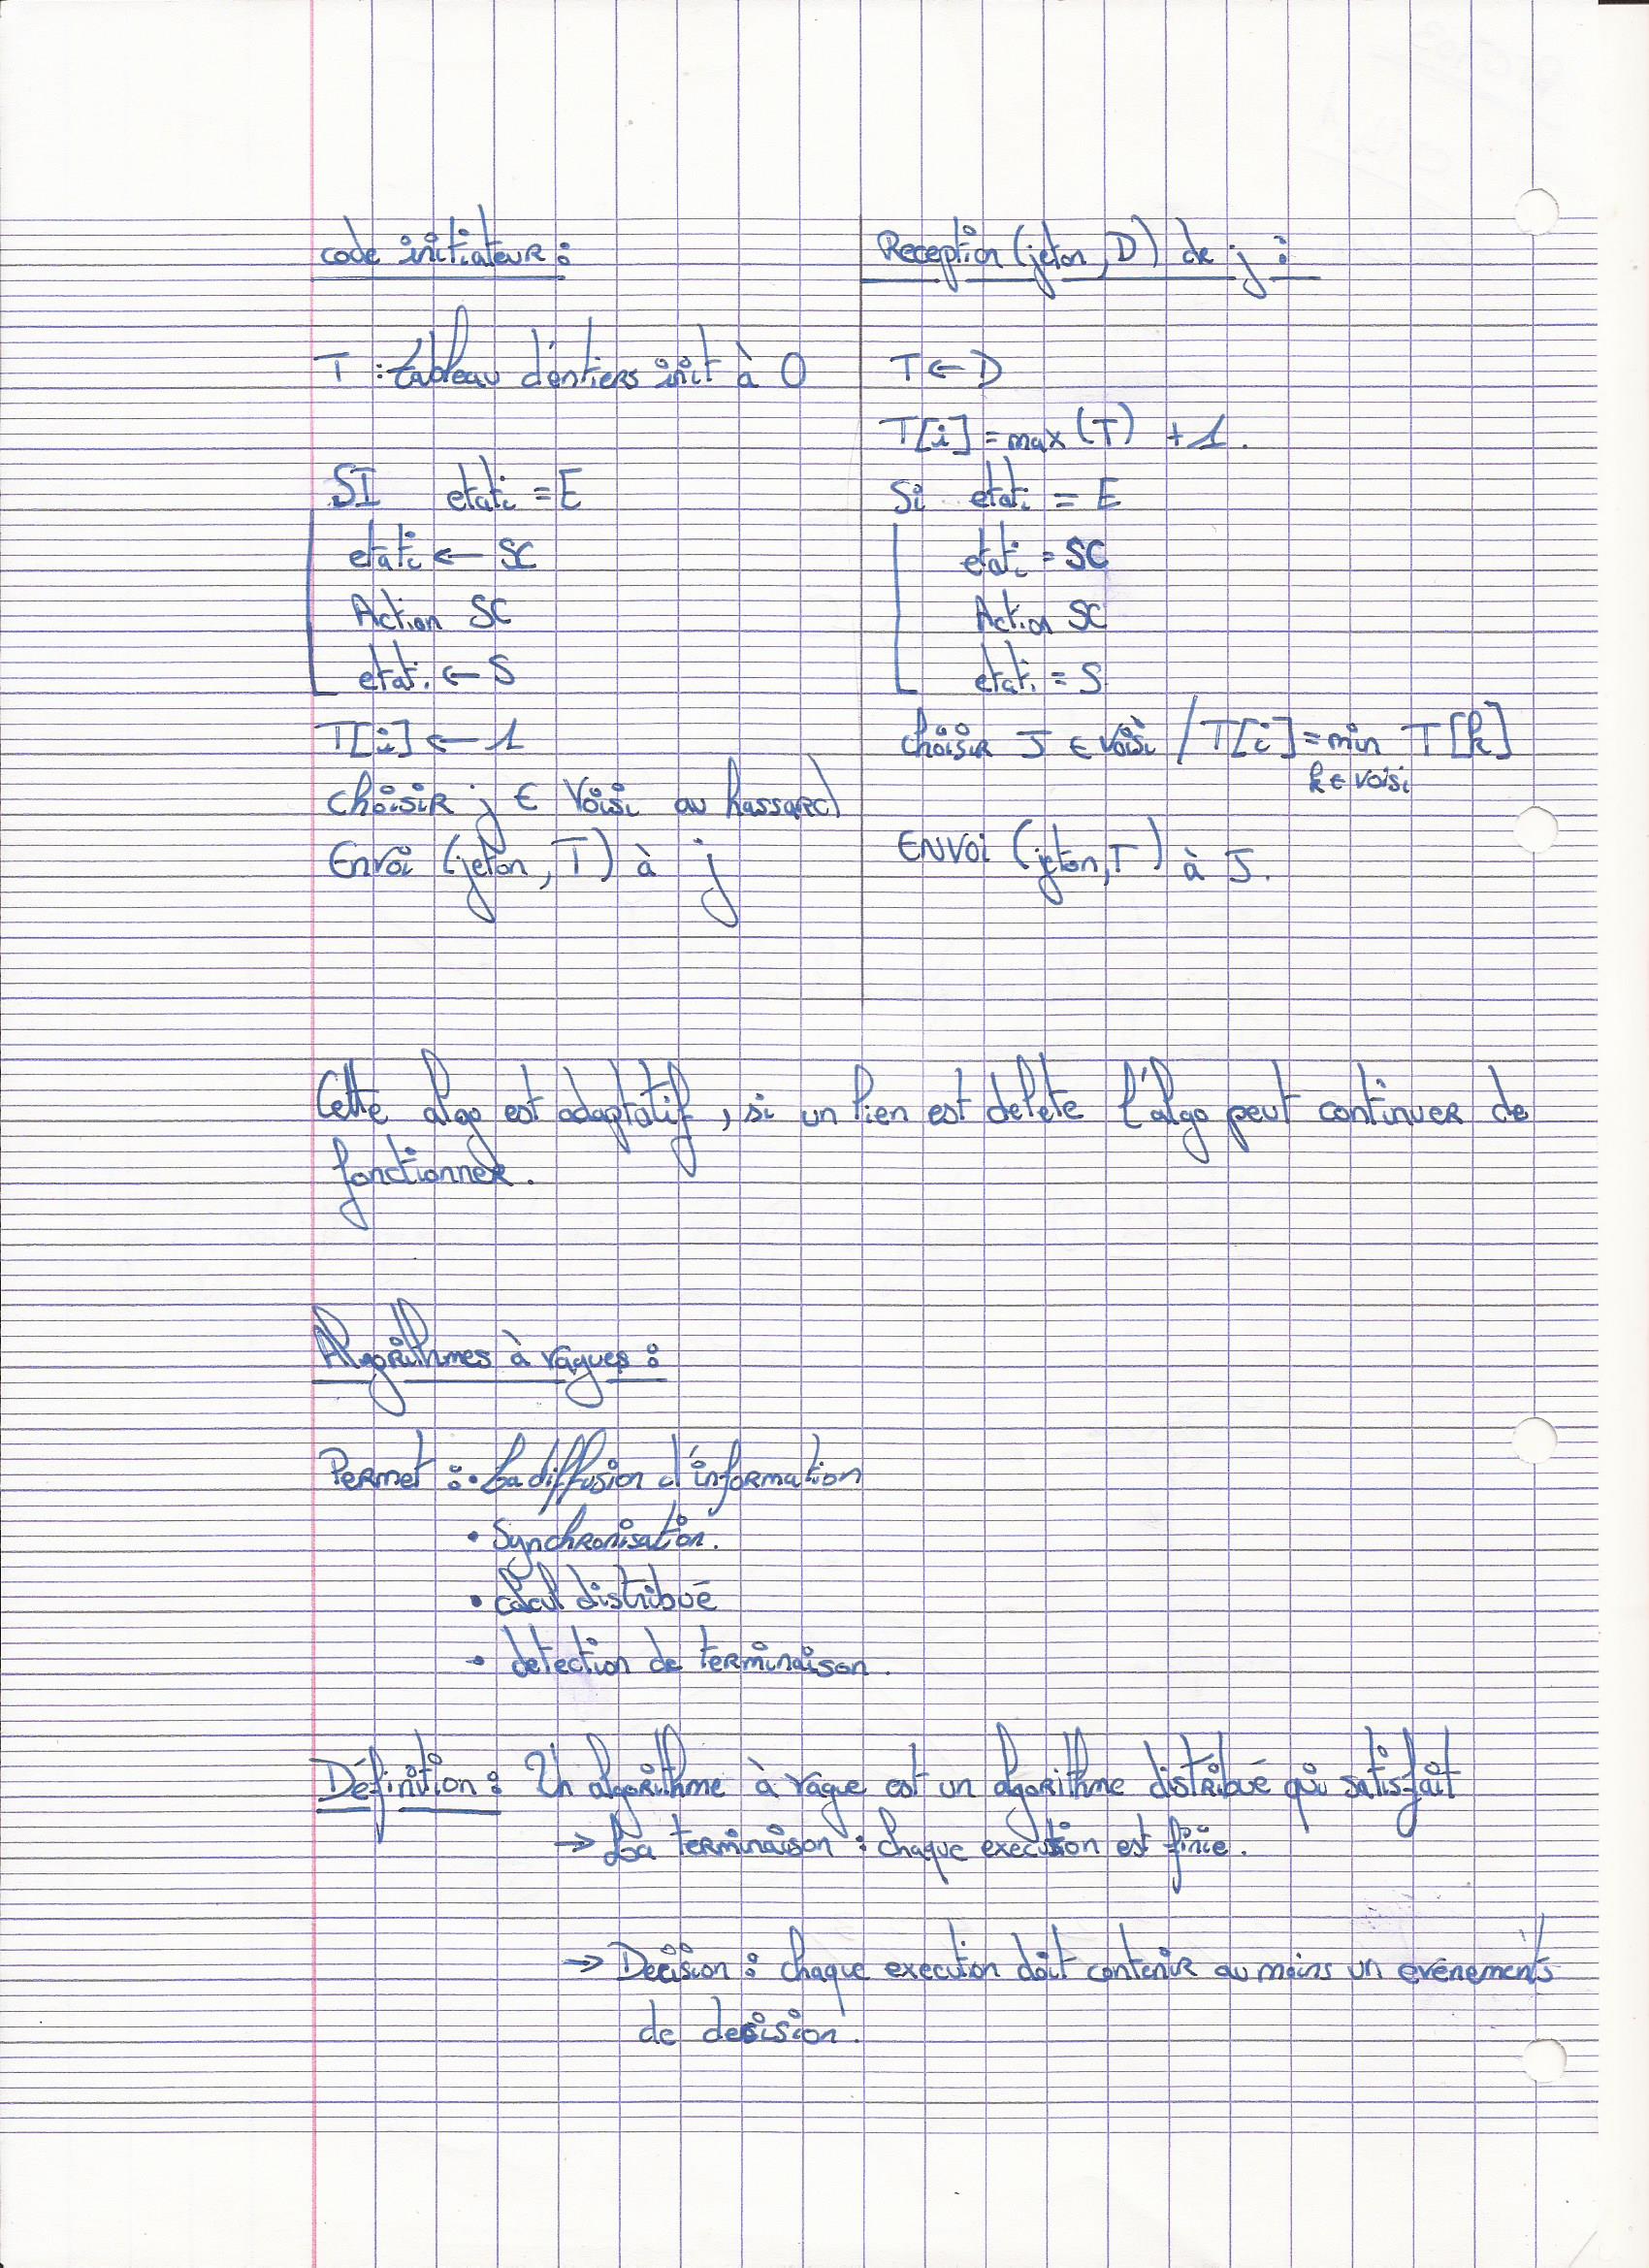 code initiateur :
T : tableau d'entiers init à 0
SI etati = E
etati ← SC
Action SC
etati ← S
T[i] ← 1
choisir j ∈ Voisi au hassard
Envoi (jeton, T) à j
Reception (jeton, D) de j :
T ← D
T[i] = max (T) + 1.
Si etati = E
etati = SC
Action SC
etati = S
choisir J ∈ voisi / T[i] = min T[k]
k ∈ voisi
ENVOI (jeton, T) à J.
Cette algo est adaptatif, si un lien est delete l'algo peut continuer de
fonctionner.
Algorithmes à vagues :
Permet : • La diffusion d'information
• Synchronisation.
• calcul distribué
• detection de terminaison.
Définition : Un algorithme à vague est un algorithme distribué qui satisfait
→ La terminaison : chaque execution est finie.
→ Decision : chaque execution doit contenir au moins un evénements
de decision.